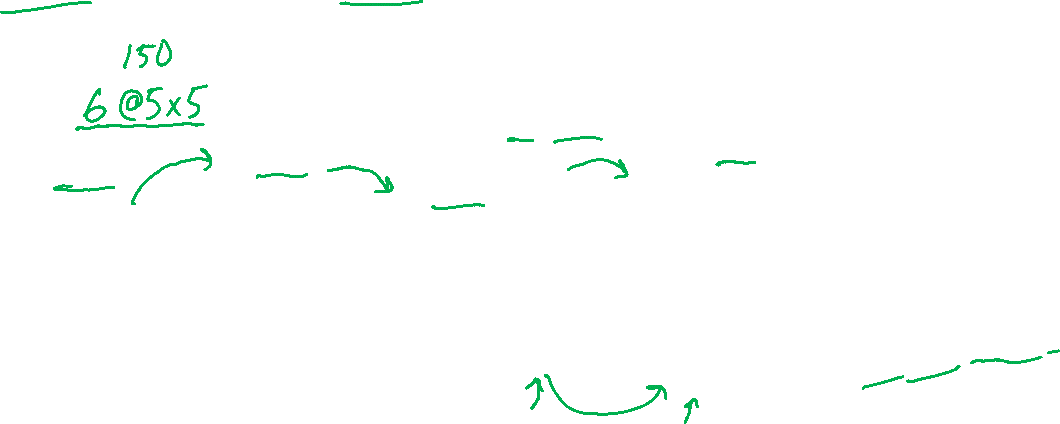 150
6 @5x5